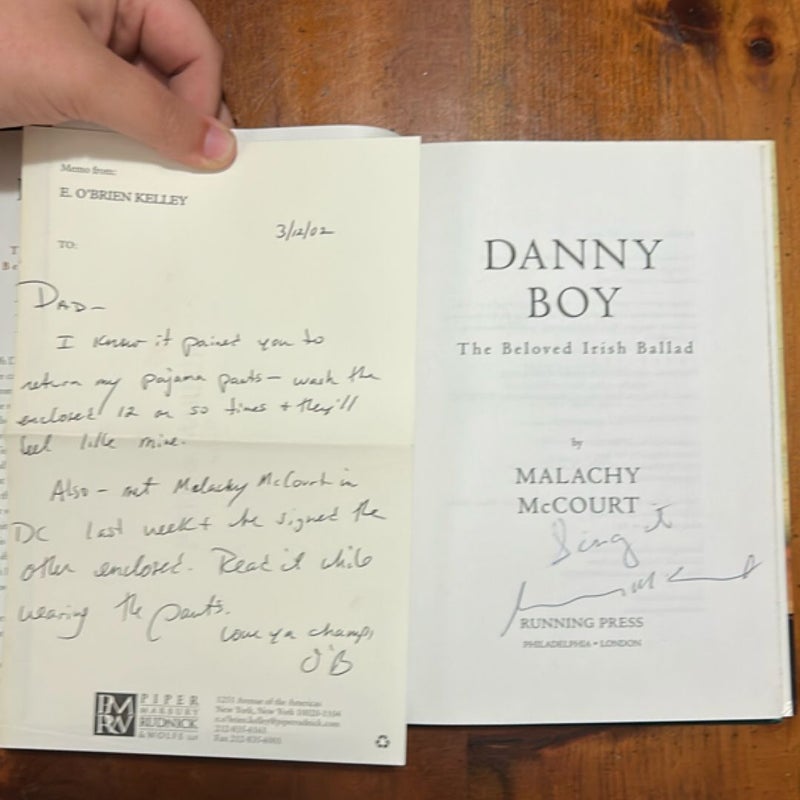 Memo from:
E. O'BRIEN KELLEY
3/12/02
TO:
DAD—
I know it pained you to
return my pajama pants— wash the
enclosed 12 or so times + they'll
feel like mine.
Also— met Malachy McCourt in
DC last week + he signed the
other enclosed. Read it while
wearing the pants.
Love ya champ,
O'B
PIPER
MARBURY
RUDNICK
& WOLFE LLP
1251 Avenue of the Americas
New York, New York
DANNY
BOY
The Beloved Irish Ballad
by
MALACHY
McCOURT
Sing it
RUNNING PRESS
PHILADELPHIA • LONDON